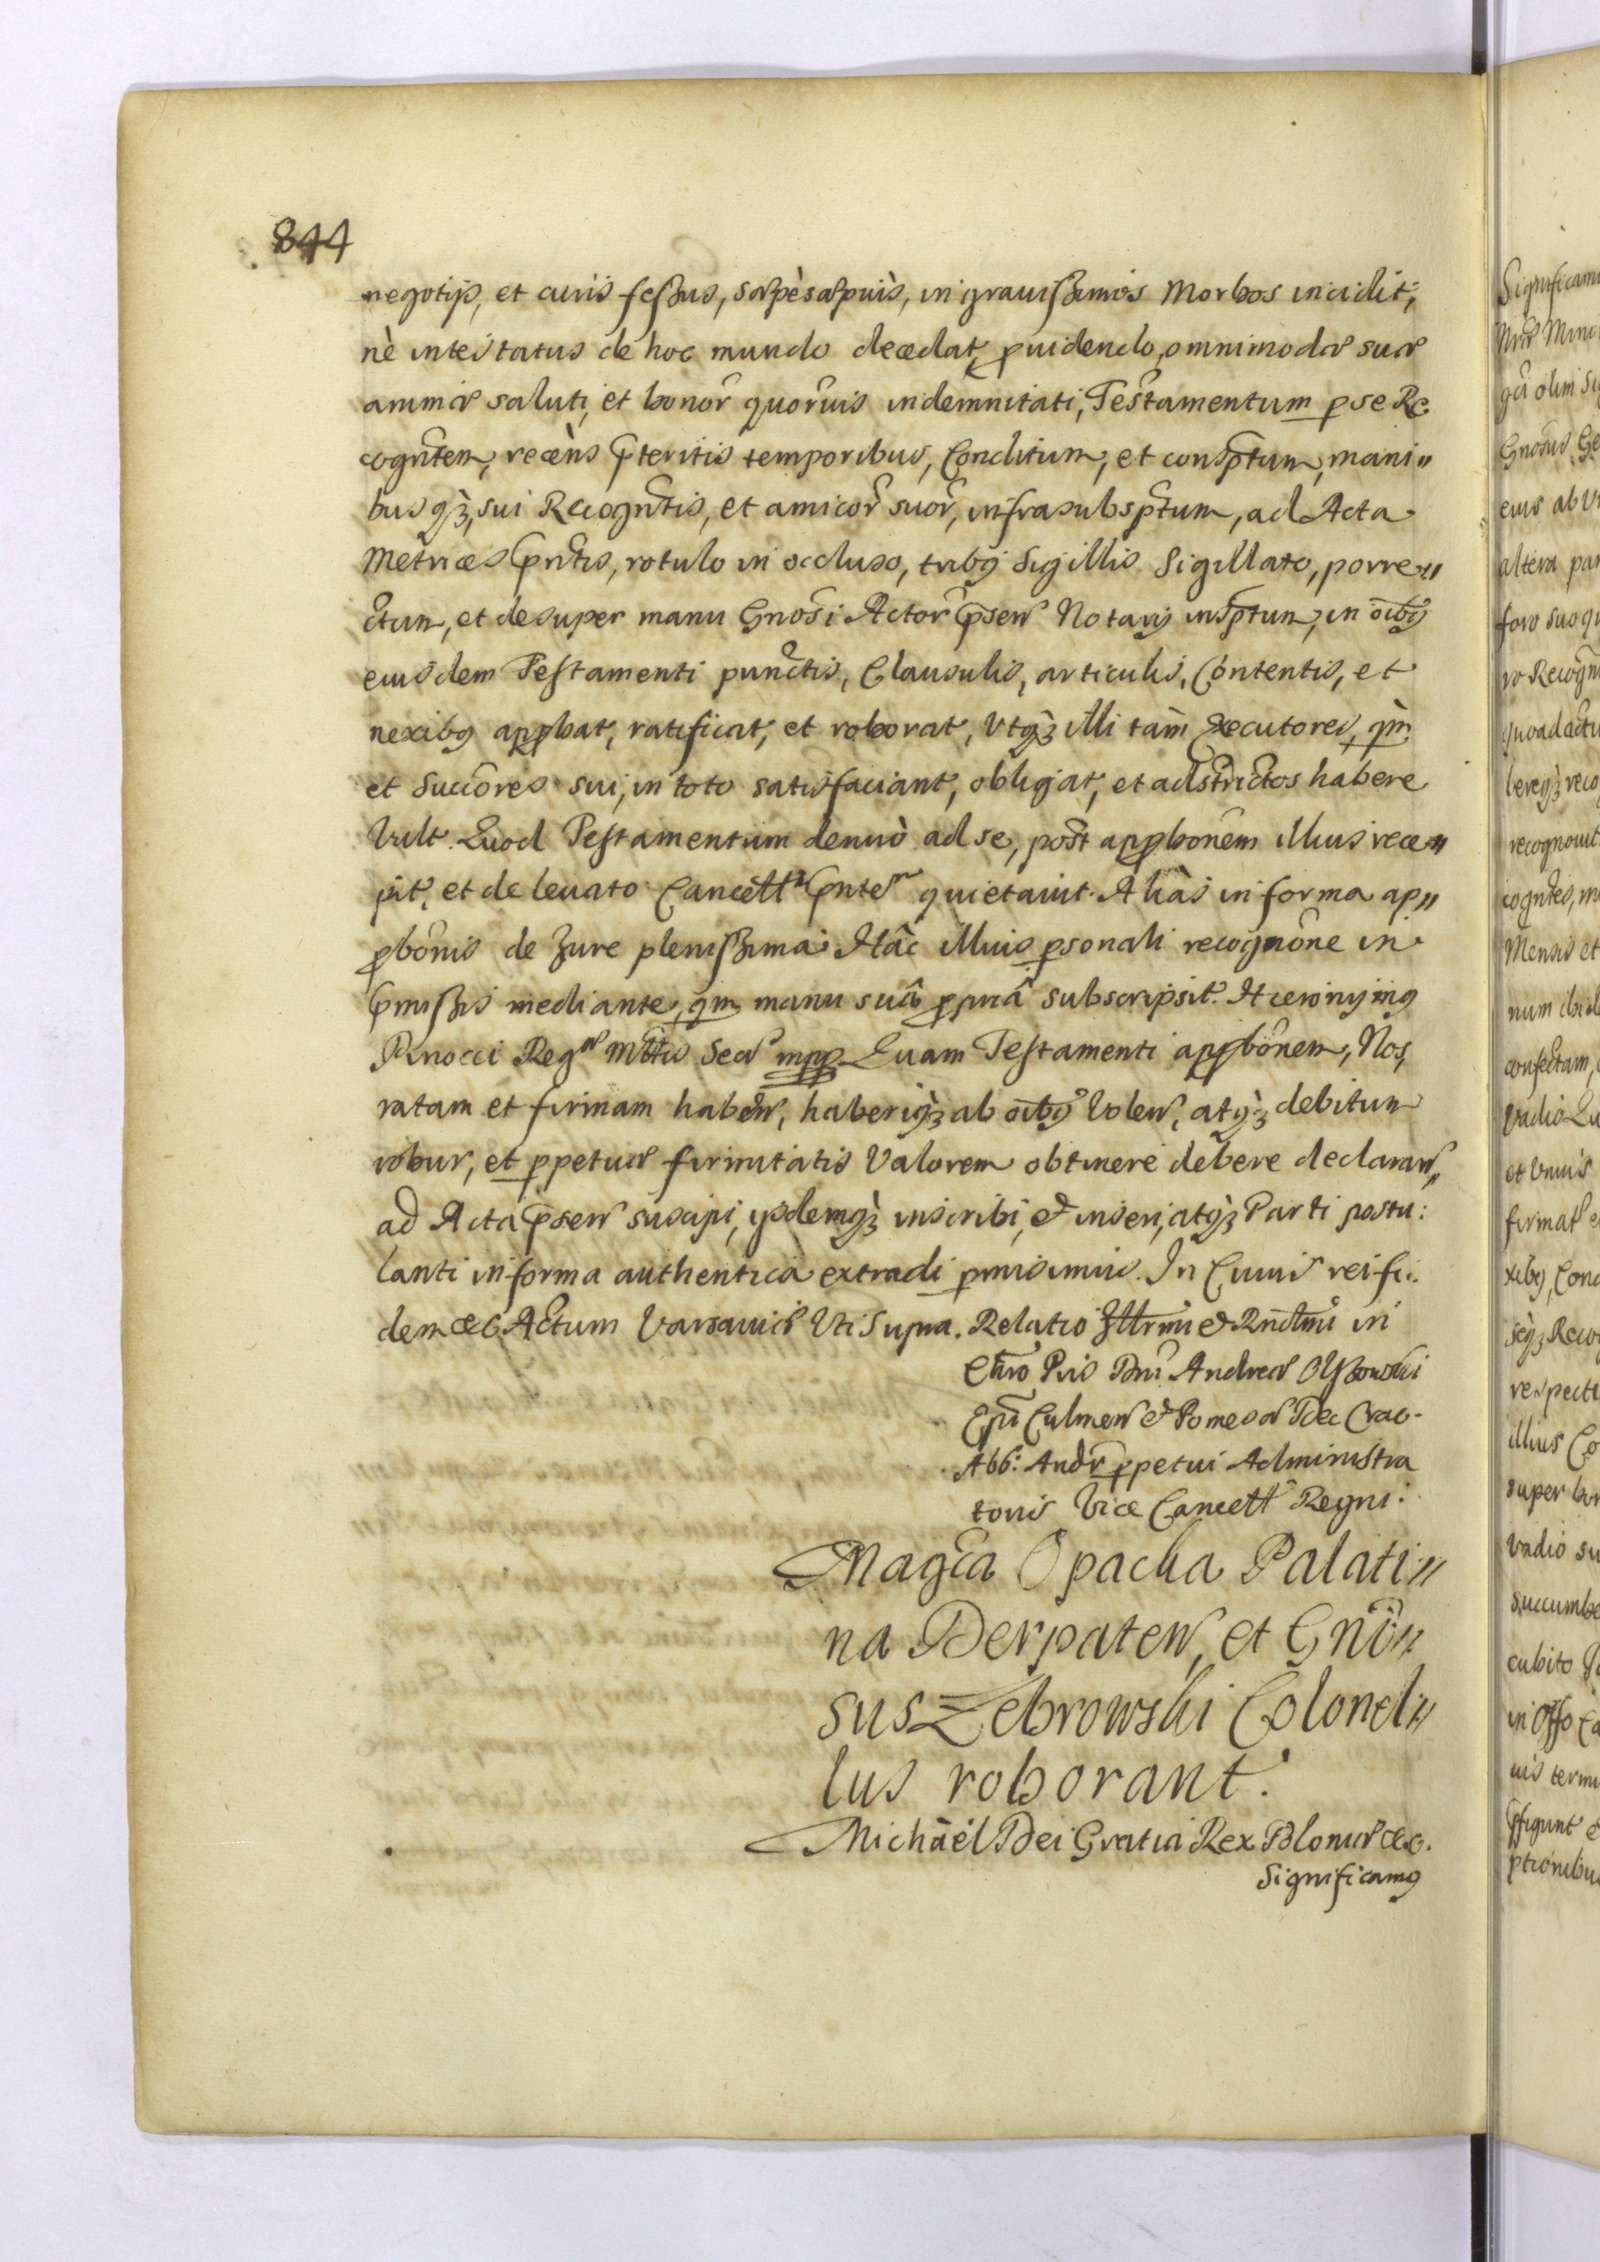 844
negotijs, et curis fessus, sæpè sæpiùs, in gravissimos Morbos incidit,
nè intestatus de hoc mundo decedat, pvidendo omnimodæ suæ
animæ saluti, et bonor quorvis indemnitati, Testamentum p se Re
cogntem, recèns pteritis temporibus, Conditum, et consptum, mani„
busqȝ, sui Recogntis, et amicor suor, infrasubsptum, ad Acta
Metrices pntis, rotulo in occluso, tribq Sigillis Sigillato, porre„
ctum, et desuper manu Gnosi Actor psen Notarij insptum, in oibq
eiusdem Testamenti punctis, Clausulis, articulis, Contentis, et
nexibq appbat, ratificat, et roborat, Utqȝ illi tàm Executores, qm
et Succores sui, in toto satisfaciant, obligat, et adstrictos habere
Vult. Quod Testamentum denuò ad se, post appbonem illius rece„
pit, et de levato Cancell pnte quietavit. Aliàs in forma ap„
pbonis de Jure plenissima. Hâc illius psonali recognone in
pmissis mediante, qm manu suâ ppriâ subscripsit. Hieronymq
Pinocci Reg Mttis Secr mpp Quam Testamenti appbonem, Nos,
ratam et firmam haben, haberiqȝ ab oibq Volen, atqȝ debitum
robur, et ppetuæ firmitatis Valorem obtinere debere declaran,
ad Acta psen suscipi, ijsdemqȝ inscribi, & inseri, atqȝ Parti postu:
lanti in forma authentica extradi pmisimus. In Cuius rei fi:
dem &c. Actum Varsaviæ Uti Supra. Relatio Illrmi & Rndmi in
Chro Pris Dni Andreæ Olszowski
Epi Culmen & Pomesa Dec Crac.
Abb: Andr ppetui Administra
toris Vice Cancell Regni.
Magca Opacka Palati„
na Derpaten, et Gno„
sus Zebrowski Colonel„
lus roborant.
Michäel Dei Gratia Rex Poloniæ &c.
Significamq